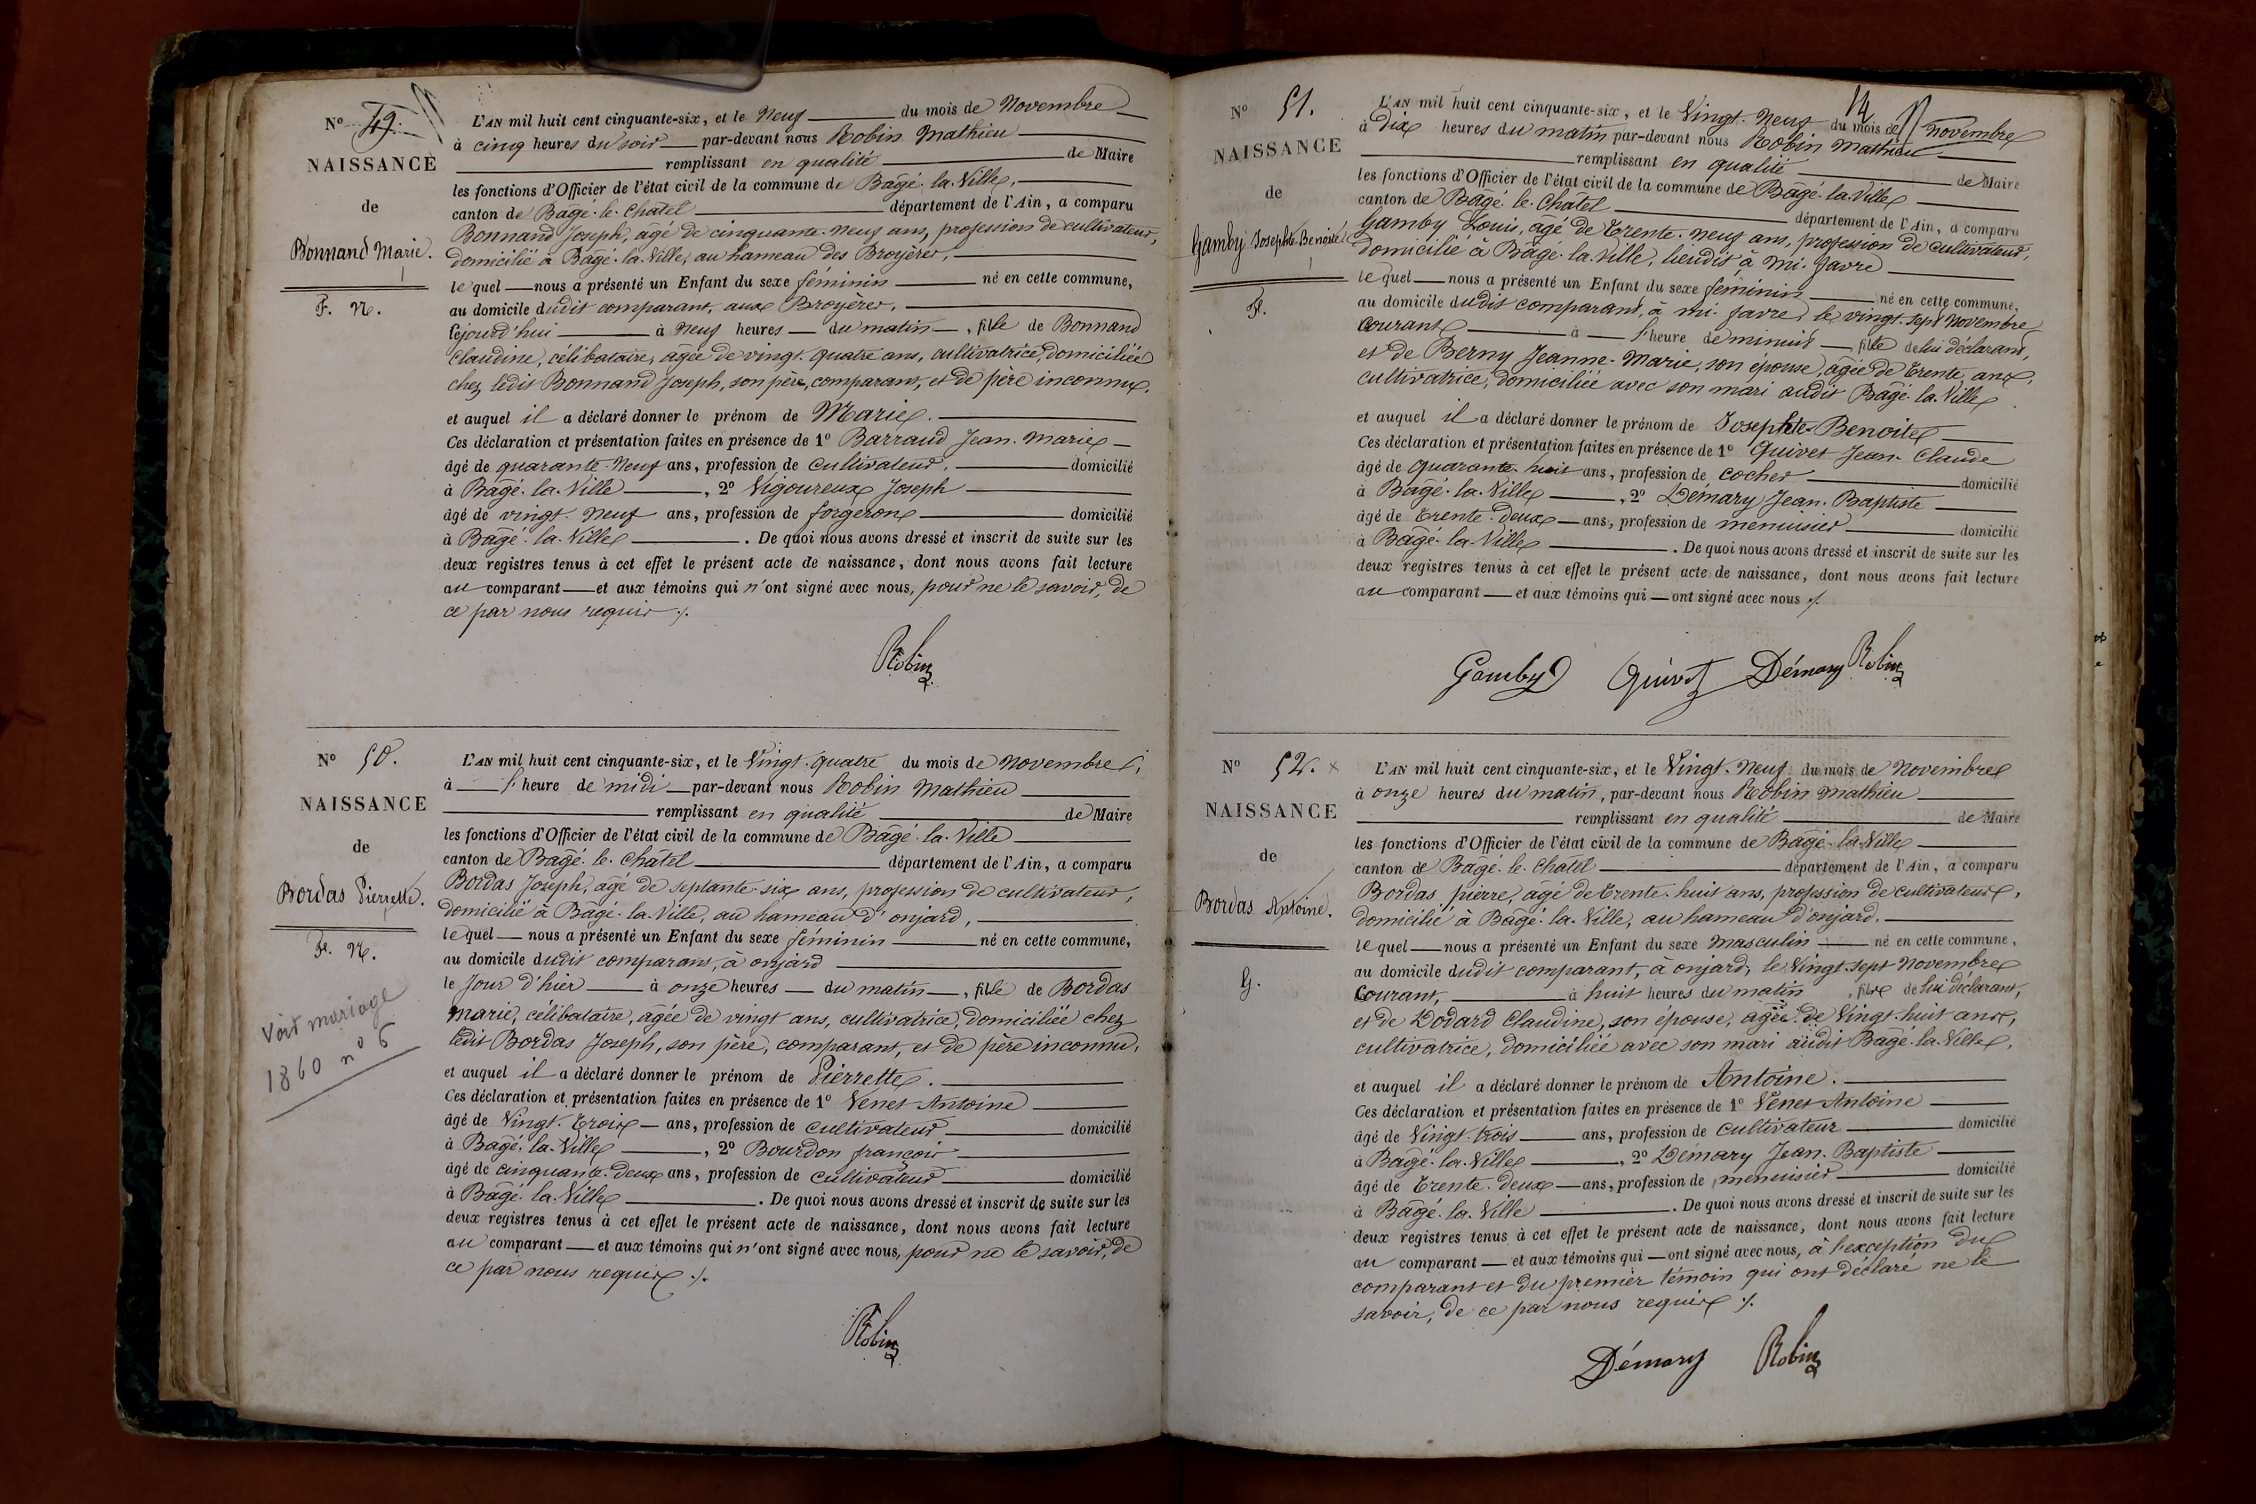 N° 49.
NAISSANCE
de
Bonnand Marie.
F. N.
L'AN mil huit cent cinquante-six, et le Neuf du mois de Novembre
à cinq heures du soir par-devant nous Robin Mathieu
remplissant en qualité de Maire
les fonctions d'Officier de l'état civil de la commune de Bâgé-la-Ville,
canton de Bâgé-le-Châtel département de l'Ain, a comparu
Bonnand Joseph, âgé de cinquante-neuf ans, profession de cultivateur,
domicilié à Bâgé-la-Ville, au hameau des Broyères,
lequel nous a présenté un Enfant du sexe féminin né en cette commune,
au domicile dudit comparant, aux Broyères,
cejourd'hui à neuf heures du matin, fille de Bonnand
Claudine, célibataire, âgée de vingt-quatre ans, cultivatrice, domiciliée
chez ledit Bonnand Joseph, son père, comparant, et de père inconnu.
et auquel il a déclaré donner le prénom de Marie.
Ces déclaration et présentation faites en présence de 1° Barraud Jean-Marie
âgé de quarante-neuf ans, profession de cultivateur, domicilié
à Bâgé-la-Ville, 2° Vigoureux Joseph
âgé de vingt-neuf ans, profession de forgeron domicilié
à Bâgé-la-Ville. De quoi nous avons dressé et inscrit de suite sur les
deux registres tenus à cet effet le présent acte de naissance, dont nous avons fait lecture
au comparant et aux témoins qui n'ont signé avec nous, pour ne le savoir, de
ce par nous requis ./.
Robin
N° 50.
NAISSANCE
de
Bordas Pierrette.
F. N.
Voir mariage
1860 n° 6
L'AN mil huit cent cinquante-six, et le Vingt-quatre du mois de Novembre,
à l'heure de midi par-devant nous Robin Mathieu
remplissant en qualité de Maire
les fonctions d'Officier de l'état civil de la commune de Bâgé-la-Ville
canton de Bâgé-le-Châtel département de l'Ain, a comparu
Bordas Joseph, âgé de septante-six ans, profession de cultivateur,
domicilié à Bâgé-la-Ville, au hameau d'onjard,
lequel nous a présenté un Enfant du sexe féminin né en cette commune,
au domicile dudit comparant, à onjard
le Jour d'hier à onze heures du matin, fille de Bordas
Marie, célibataire, âgée de vingt ans, cultivatrice, domiciliée chez
ledit Bordas Joseph, son père, comparant, et de père inconnu,
et auquel il a déclaré donner le prénom de Pierrette.
Ces déclaration et présentation faites en présence de 1° Venet Antoine
âgé de Vingt-Trois ans, profession de cultivateur domicilié
à Bâgé-la-Ville, 2° Bourdon françois
âgé de cinquante-deux ans, profession de cultivateur domicilié
à Bâgé-la-Ville. De quoi nous avons dressé et inscrit de suite sur les
deux registres tenus à cet effet le présent acte de naissance, dont nous avons fait lecture
au comparant et aux témoins qui n'ont signé avec nous, pour ne le savoir, de
ce par nous requis ./.
Robin
N° 51.
NAISSANCE
de
Gamby Josephte-Benoite
F.
L'AN mil huit cent cinquante-six, et le Vingt-Neuf du mois de Novembre
à Dix heures du matin par-devant nous Robin Mathieu
remplissant en qualité de Maire
les fonctions d'Officier de l'état civil de la commune de Bâgé-la-Ville
canton de Bâgé-le-Châtel département de l'Ain, a comparu
Gamby Louis, âgé de Trente-neuf ans, profession de cultivateur,
domicilié à Bâgé-la-Ville, lieudit à Mi-favre
lequel nous a présenté un Enfant du sexe féminin né en cette commune,
au domicile dudit comparant, à mi-favre, le vingt-sept Novembre
courant à l'heure de minuit fille de lui déclarant,
et de Berny Jeanne-Marie, son épouse, âgée de Trente ans,
cultivatrice, domiciliée avec son mari audit Bâgé-la-Ville
et auquel il a déclaré donner le prénom de Josephte-Benoite
Ces déclaration et présentation faites en présence de 1° Quivet Jean-Claude
âgé de quarante-huit ans, profession de cocher domicilié
à Bâgé-la-Ville, 2° Démary Jean-Baptiste
âgé de Trente-deux ans, profession de menuisier domicilié
à Bâgé-la-Ville. De quoi nous avons dressé et inscrit de suite sur les
deux registres tenus à cet effet le présent acte de naissance, dont nous avons fait lecture
au comparant et aux témoins qui ont signé avec nous ./.
Gamby Quivet Démary Robin
N° 52.
NAISSANCE
de
Bordas Antoine.
G.
L'AN mil huit cent cinquante-six, et le Vingt-Neuf du mois de Novembre
à onze heures du matin, par-devant nous Robin Mathieu
remplissant en qualité de Maire
les fonctions d'Officier de l'état civil de la commune de Bâgé-la-Ville
canton de Bâgé-le-Châtel département de l'Ain, a comparu
Bordas pierre, âgé de Trente-huit ans, profession de cultivateur,
domicilié à Bâgé-la-Ville, au hameau d'onjard.
lequel nous a présenté un Enfant du sexe masculin né en cette commune,
au domicile dudit comparant, à onjard, le Vingt-sept Novembre
courant, à huit heures du matin, fils de lui déclarant,
et de Dodard Claudine, son épouse, âgée de Vingt-huit ans,
cultivatrice, domiciliée avec son mari audit Bâgé-la-Ville,
et auquel il a déclaré donner le prénom de Antoine.
Ces déclaration et présentation faites en présence de 1° Venet Antoine
âgé de Vingt-trois ans, profession de cultivateur domicilié
à Bâgé-la-Ville, 2° Démary Jean-Baptiste
âgé de Trente-deux ans, profession de menuisier domicilié
à Bâgé-la-Ville. De quoi nous avons dressé et inscrit de suite sur les
deux registres tenus à cet effet le présent acte de naissance, dont nous avons fait lecture
au comparant et aux témoins qui ont signé avec nous, à l'exception du
comparant et du premier témoin qui ont déclaré ne le
savoir, de ce par nous requis ./.
Démary Robin